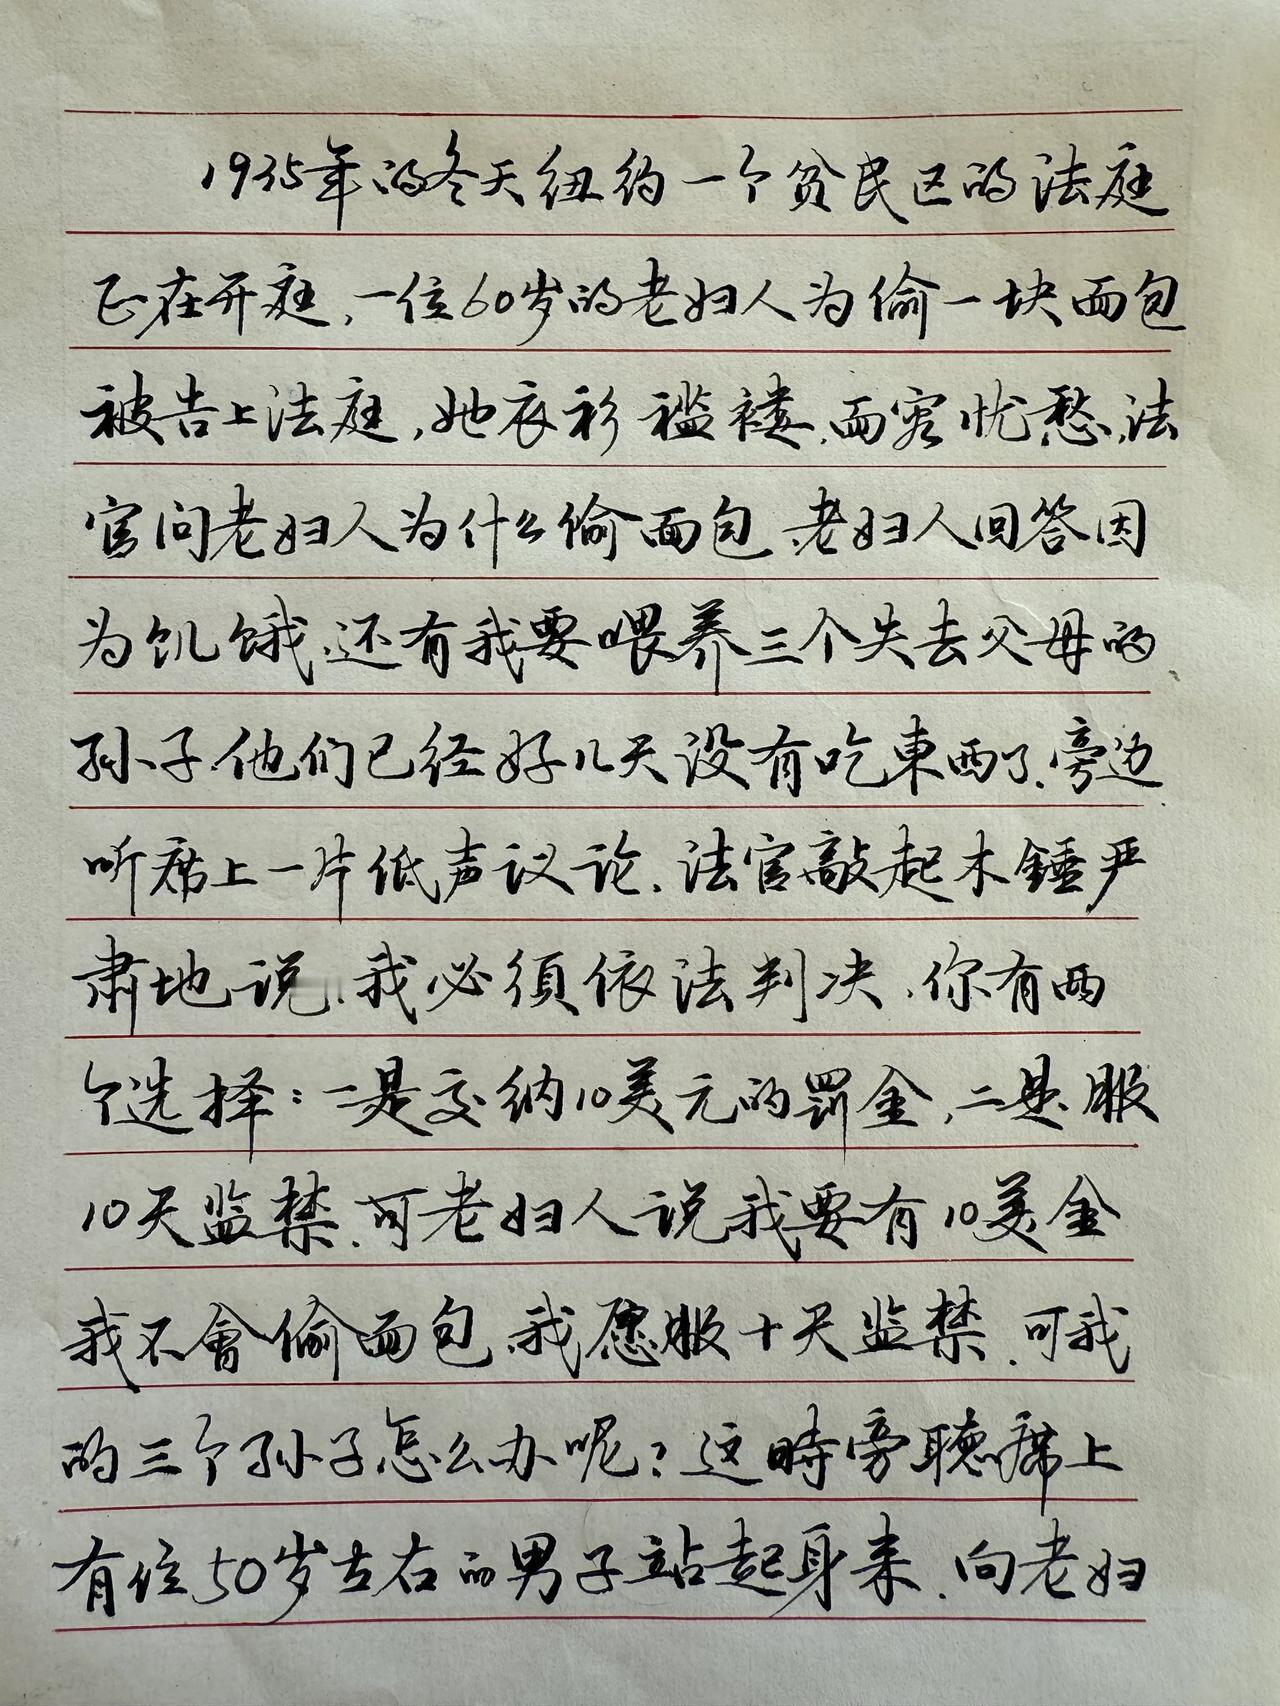 1935年的冬天纽约一个贫民区的法庭
正在开庭，一位60岁的老妇人为偷一块面包
被告上法庭，她衣衫褴褛、面容忧愁，法
官问老妇人为什么偷面包、老妇人回答因
为饥饿、还有我要喂养三个失去父母的
孙子他们已经好几天没有吃東西了、旁边
听席上一片低声议论、法官敲起木錘严
肃地说、我必須依法判决、你有两
个选择：一是交纳10美元的罚金，二是服
10天监禁、可老妇人说我要有10美金
我不會偷面包、我愿服十天监禁、可我
的三个孙子怎么办呢？这時旁聴席上
有位50岁左右的男子站起身来、向老妇